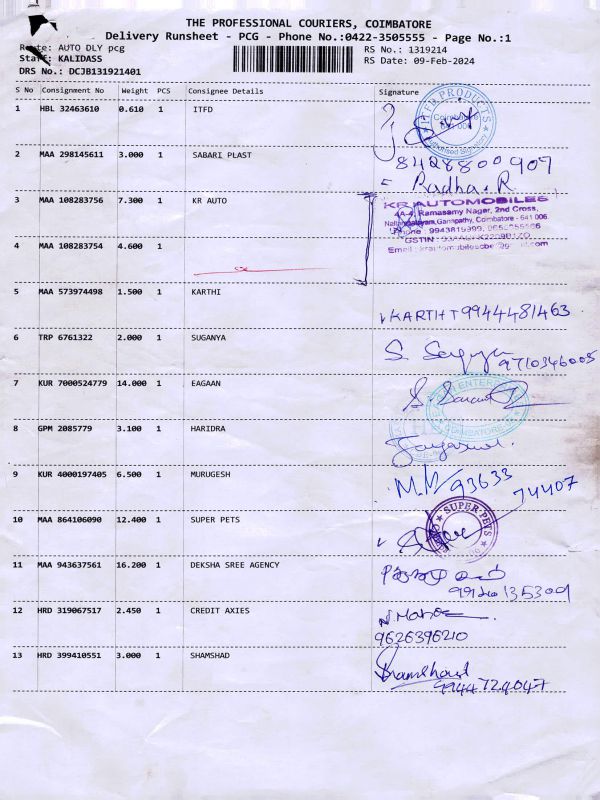 THE PROFESSIONAL COURIERS, COIMBATORE
Delivery Runsheet - PCG - Phone No.:0422-3505555 - Page No.:1
Route: AUTO DLY pcg
RS No.: 1319214
Staff: KALIDASS
RS Date: 09-Feb-2024
DRS No.: DCJB131921401
S No Consignment No Weight PCS Consignee Details Signature
1 HBL 32463610 0.610 1 ITFD
ITFD PRODUCTS
2 MAA 298145611 3.000 1 SABARI PLAST
8428800907
Radha.R
3 MAA 108283756 7.300 1 KR AUTO
KR AUTOMOBILES
4-A-4, Ramasamy Nager, 2nd Cross,
Ganapathy, Coimbatore - 641 006.
4 MAA 108283754 4.600 1
GSTIN
5 MAA 573974498 1.500 1 KARTHI
KARTHI 9944481463
6 TRP 6761322 2.000 1 SUGANYA
9710346005
7 KUR 7000524779 14.000 1 EAGAAN
8 GPM 2085779 3.100 1 HARIDRA
9 KUR 4000197405 6.500 1 MURUGESH
93633
74407
10 MAA 864106090 12.400 1 SUPER PETS
SUPER PETS
11 MAA 943637561 16.200 1 DEKSHA SREE AGENCY
12 HRD 319067517 2.450 1 CREDIT AXIES
9626396210
13 HRD 399410551 3.000 1 SHAMSHAD
Shamshad
9944729047